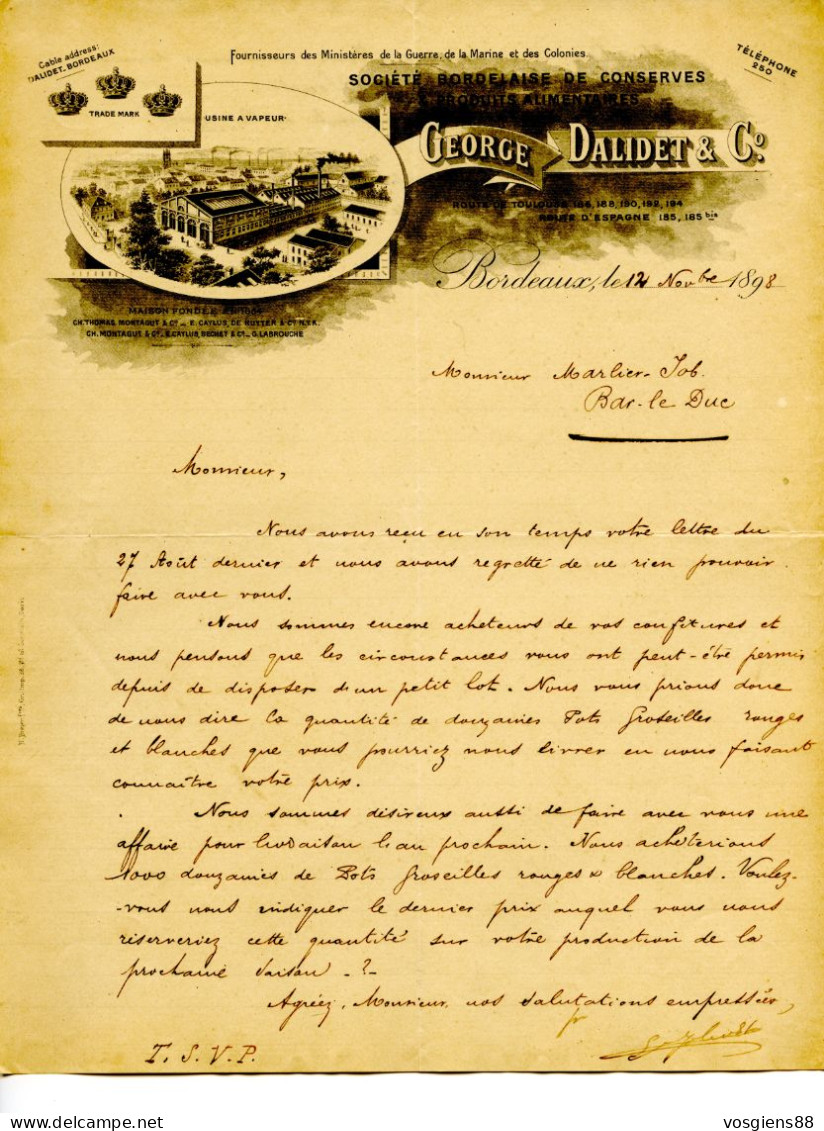 Cable address:
DALIDET_BORDEAUX
TRADE MARK
Fournisseurs des Ministères de la Guerre, de la Marine et des Colonies.
TÉLÉPHONE
250
SOCIÉTÉ BORDELAISE DE CONSERVES
& PRODUITS ALIMENTAIRES
USINE A VAPEUR
GEORGE DALIDET & Cº.
ROUTE DE TOULOUSE 186, 188, 190, 192, 194
ROUTE D'ESPAGNE 185, 185 bis
Bordeaux, le 12 Novbe 1898
MAISON FONDÉE EN
CH. THOMAS MONTAGUT & Cº _ E. CAYLUS, DE RUYTER & Cº
CH. MONTAGUT & Cº. E. CAYLUS, BECHET & Cº _ G. LABROUCHE
Monsieur Marlier-Job.
Bar-le Duc
Monsieur,
Nous avons reçu en son temps votre lettre du
27 Août dernier et nous avons regretté de ne rien pouvoir
faire avec vous.
Nous sommes encore acheteurs de vos confitures et
nous pensons que les circonstances vous ont peut-être permis
depuis de disposer d'un petit lot. Nous vous prions donc
de nous dire la quantité de douzaines Pots Groseilles rouges
et blanches que vous pourriez nous livrer en nous faisant
connaître votre prix.
Nous sommes désireux aussi de faire avec vous une
affaire pour livraison l'an prochain. Nous achèterions
1000 douzaines de Pots Groseilles rouges & blanches. Voulez-
-vous nous indiquer le dernier prix auquel vous nous
réserveriez cette quantité sur votre production de la
prochaine saison - ?-
Agréez, Monsieur, nos salutations empressées,
T. S. V. P.
delcampe.net
vosgiens88